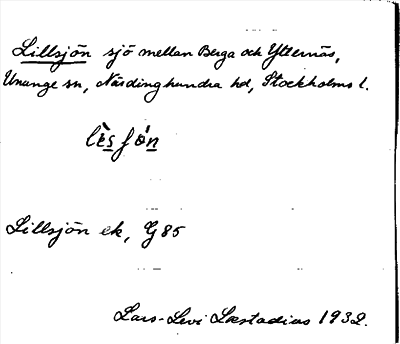 Lillsjön sjö mellan Berga och Ytternäs,
Ununge sn, Närdinghundra hd, Stockholms l.
lèsjǿn
Lillsjön ek, G 85
Lars-Levi Læstadius 1932.